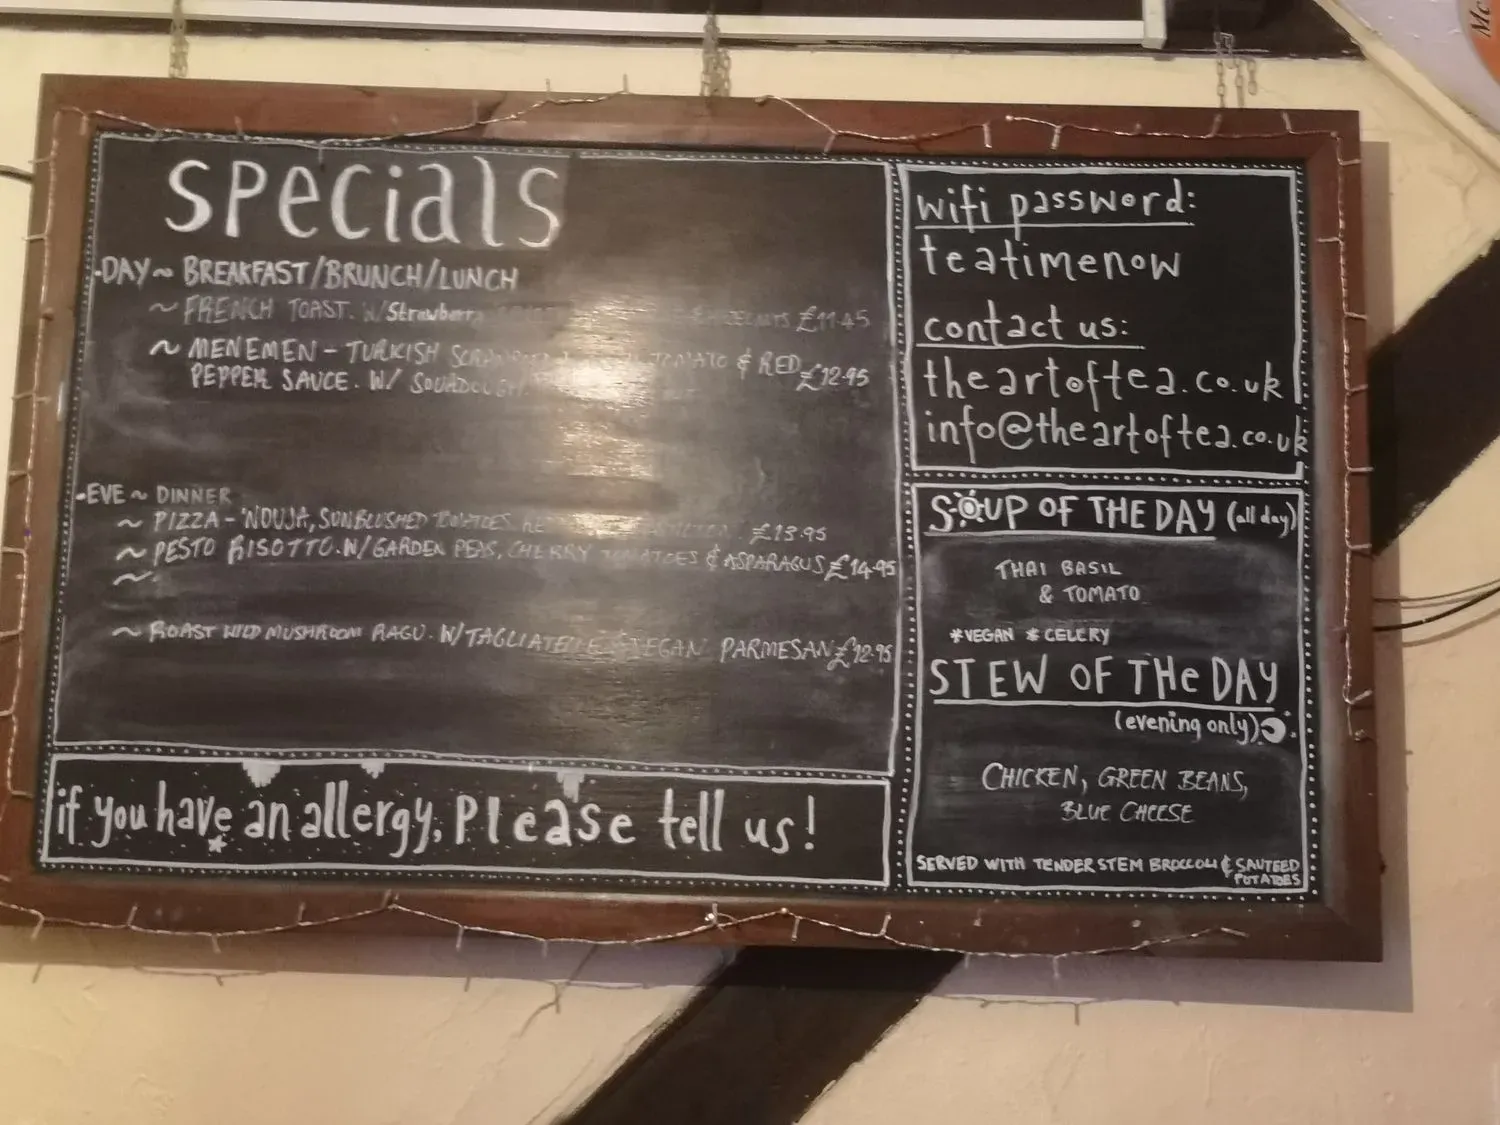 specials
•DAY~ BREAKFAST/BRUNCH/LUNCH
~ FRENCH TOAST. W/ Strawberry £11.45
~ MENEMEN - TURKISH TOMATO & RED
PEPPER SAUCE. W/ SOURDOUGH £12.95
•EVE ~ DINNER
~ PIZZA - 'NDUJA, SUNBLUSHED TOMATOES, £13.95
~ PESTO RISOTTO. W/ GARDEN PEAS, CHERRY TOMATOES & ASPARAGUS £14.95
~
~ ROAST WILD MUSHROOM RAGU. W/ TAGLIATELLE & VEGAN PARMESAN £12.95
if you have an allergy, Please tell us!
wifi password:
teatimenow
contact us:
theartoftea.co.uk
info@theartoftea.co.uk
SOUP OF THE DAY (all day)
THAI BASIL
& TOMATO
*VEGAN *CELERY
STEW OF THe DAY
(evening only)
CHICKEN, GREEN BEANS,
BLUE CHEESE
SERVED WITH TENDERSTEM BROCCOLI & SAUTEED
POTATOES
Mc